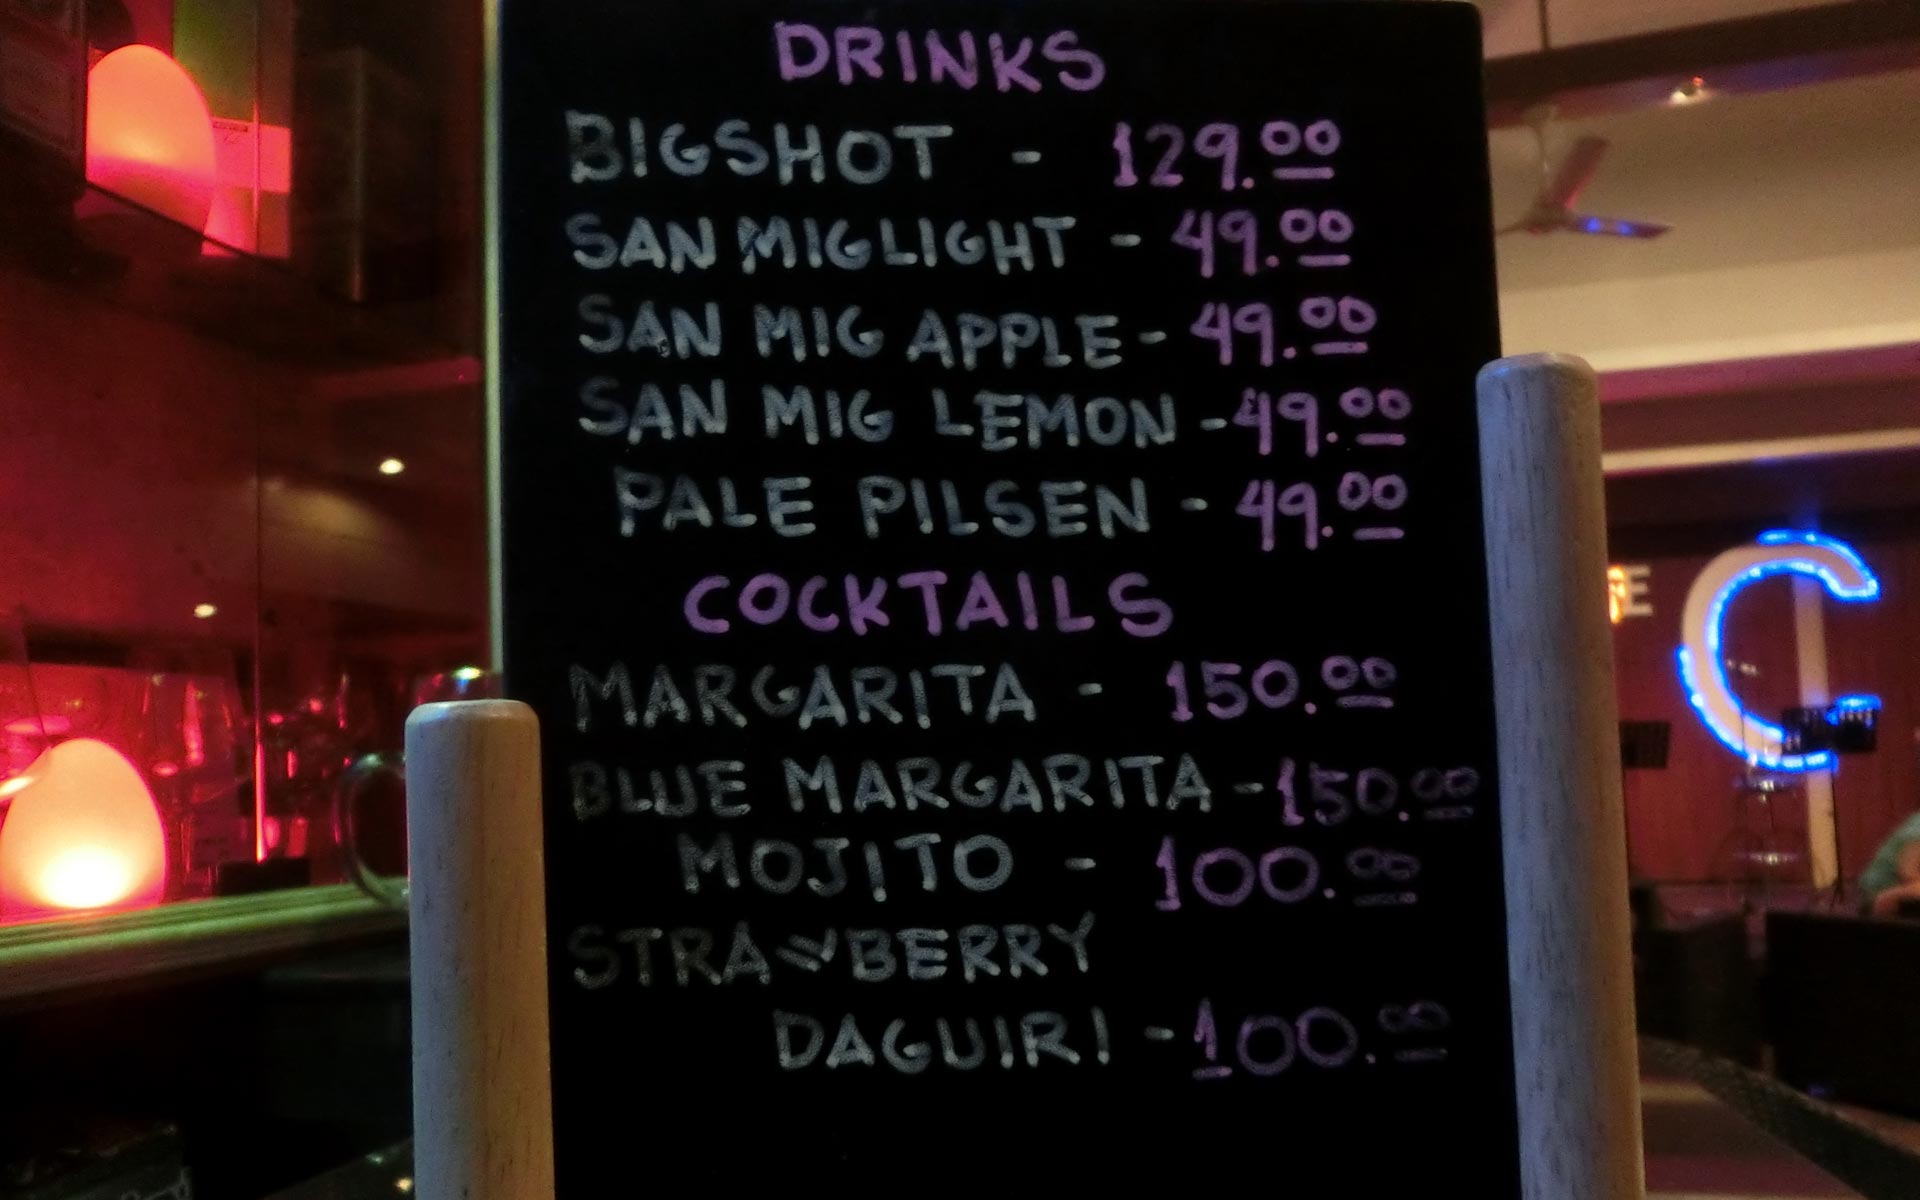 DRINKS
BIGSHOT - 129.00
SAN MIGLIGHT - 49.00
SAN MIG APPLE - 49.00
SAN MIG LEMON - 49.00
PALE PILSEN - 49.00
COCKTAILS
MARGARITA - 150.00
BLUE MARGARITA - 150.00
MOJITO - 100.00
STRAWBERRY
DAGUIRI - 100.00
C